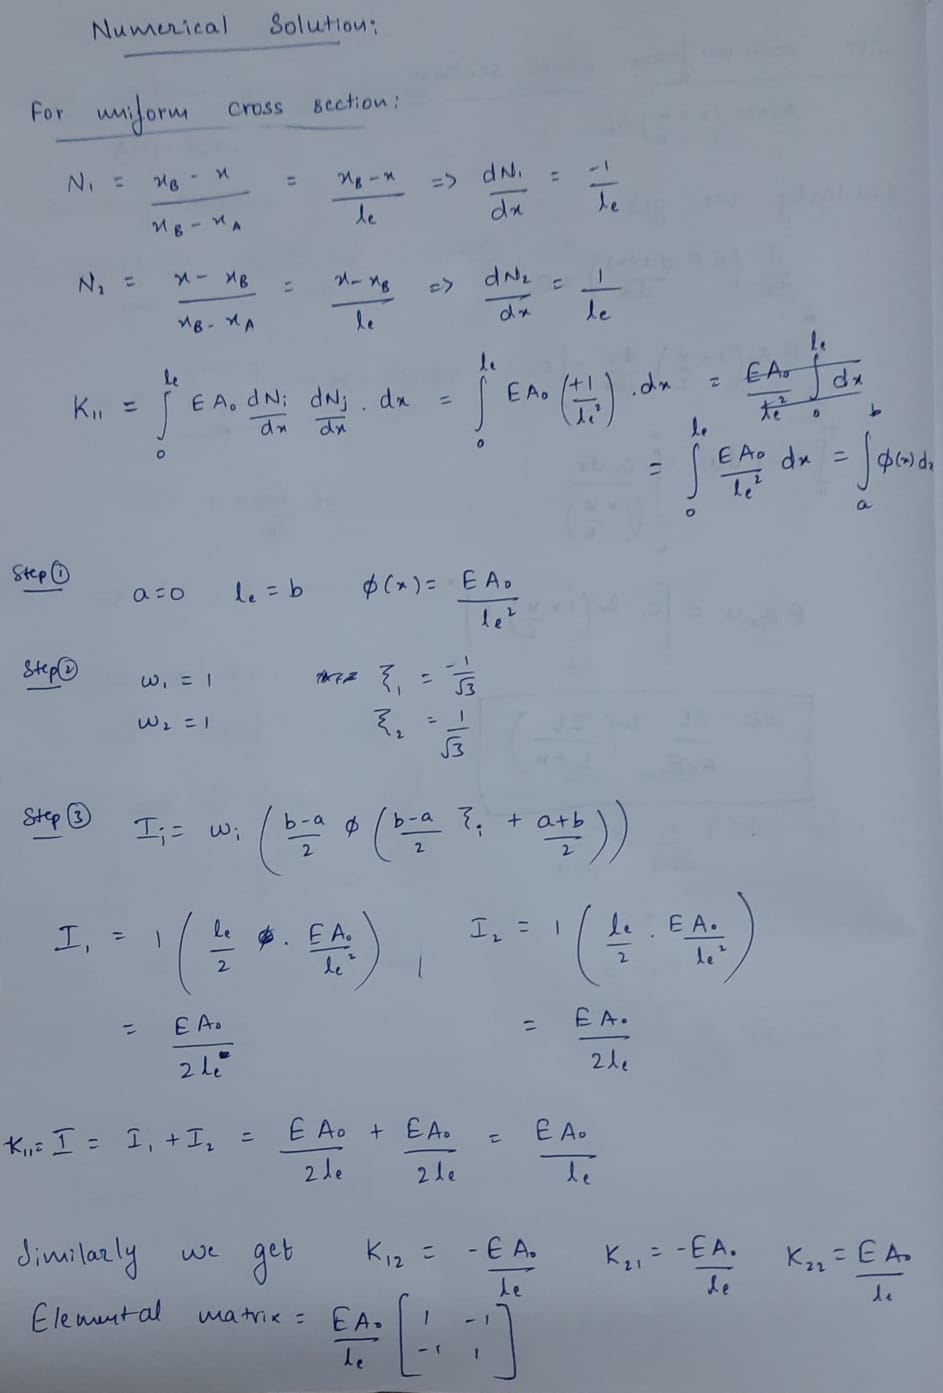 Numerical Solution:
For uniform cross section:
N₁ = (x_B - x)/(x_B - x_A) = (x_B - x)/l_e => dN₁/dx = -1/l_e
N₂ = (x - x_B)/(x_B - x_A) = (x - x_B)/l_e => dN₂/dx = 1/l_e
K₁₁ = ∫₀^{l_e} E A₀ dN_i/dx dN_j/dx . dx = ∫₀^{l_e} E A₀ (+1/l_e²) . dx = E A₀/l_e² ∫₀^{l_e} dx
= ∫₀^{l_e} E A₀/l_e² dx = ∫ₐᵇ φ(x) dx
Step ① a=0 l_e = b φ(x) = E A₀/l_e²
Step ② w₁ = 1 ξ₁ = -1/√3
w₂ = 1 ξ₂ = 1/√3
Step ③ I_i = w_i ( (b-a)/2 φ ( (b-a)/2 ξ_i + (a+b)/2 ) )
I₁ = 1 ( l_e/2 . E A₀/l_e² ) , I₂ = 1 ( l_e/2 . E A₀/l_e² )
= E A₀/2l_e = E A₀/2l_e
K₁₁ = I = I₁ + I₂ = E A₀/2l_e + E A₀/2l_e = E A₀/l_e
Similarly we get K₁₂ = -E A₀/l_e K₂₁ = -E A₀/l_e K₂₂ = E A₀/l_e
Elemental matrix = E A₀/l_e [ 1 -1
-1 1 ]